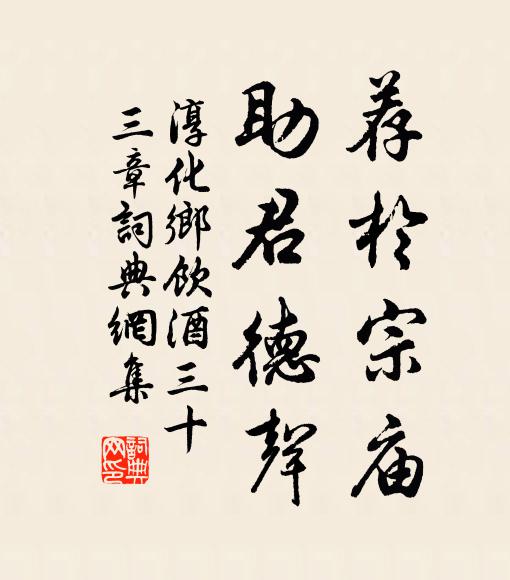 荐於宗庙
助君德聲
淳化鄉飲酒三十
三章詞典網集
詞典网印